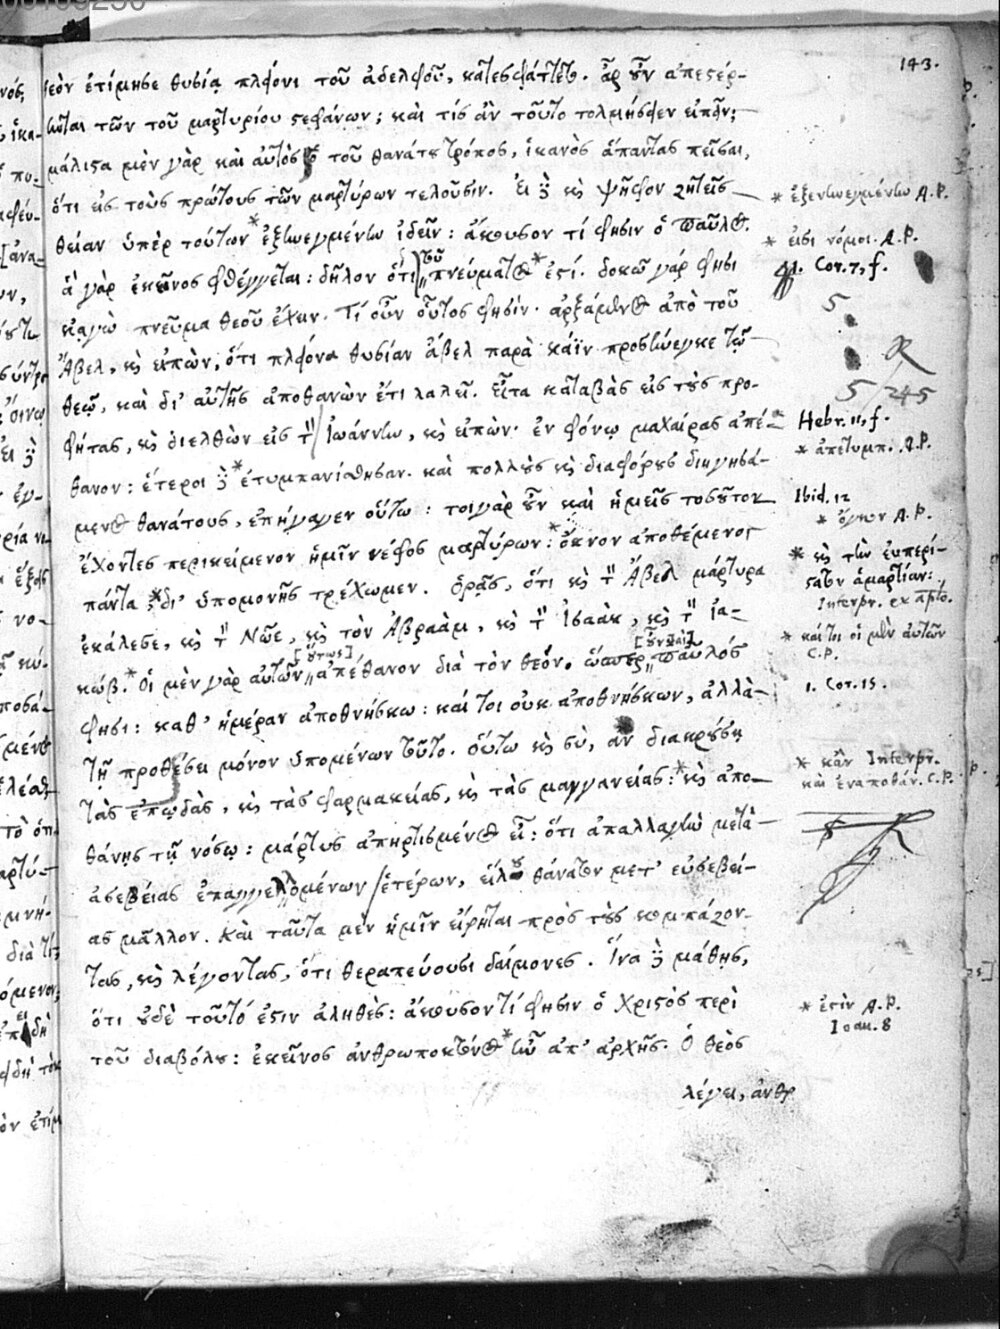 143.
θεὸν ἐτίμησε θυσίᾳ πλείονι τοῦ ἀδελφοῦ, κατεσφάττετο. ἆρ' οὖν ἀπεστέρ-
ηται τῶν τοῦ μαρτυρίου στεφάνων; καὶ τίς ἂν τοῦτο τολμήσειεν εἰπεῖν;
μάλιστα μὲν γὰρ καὶ αὐτὸς ὁ τοῦ θανάτου τρόπος, ἱκανὸς ἅπαντας πεῖσαι,
ὅτι εἰς τοὺς πρώτους τῶν μαρτύρων τελοῦσιν. Εἰ δὲ καὶ ψῆφον ζητεῖς
θείαν ὑπὲρ τούτων * ἐξενηνεγμένην ἰδεῖν: ἄκουσον τί φησιν ὁ Παῦλος.
ἃ γὰρ ἐκεῖνος φθέγγεται: δῆλον ὅτι τοῦ πνεύματος * ἐστί. δοκῶ γάρ φησι
κἀγὼ πνεῦμα θεοῦ ἔχειν. Τί οὖν οὗτος φησίν. ἀρξάμενος ἀπὸ τοῦ
Ἄβελ, καὶ εἰπὼν, ὅτι πλείονα θυσίαν ἄβελ παρὰ κάϊν προσήνεγκε τῷ
θεῷ, καὶ δι' αὐτῆς ἀποθανὼν ἔτι λαλεῖ. εἶτα καταβὰς εἰς τοὺς προ-
φήτας, καὶ διελθὼν εἰς τὸν Ἰωάννην, καὶ εἰπὼν· ἐν φόνῳ μαχαίρας ἀπέ-
θανον: ἕτεροι δὲ * ἐτυμπανίσθησαν. καὶ πολλοὺς καὶ διαφόρους διηγησά-
μενος θανάτους, ἐπήγαγεν οὕτω: τοιγὰρ οὖν καὶ ἡμεῖς τοσοῦτον
ἔχοντες περικείμενον ἡμῖν νέφος μαρτύρων: * ὄκνον ἀποθέμενοι
πάντα * δι' ὑπομονῆς τρέχωμεν. Ὁρᾷς, ὅτι καὶ τὸν Ἄβελ μάρτυρα
ἐκάλεσε, καὶ τὸν Νῶε, καὶ τὸν Ἀβραὰμ, καὶ τὸν Ἰσαὰκ, καὶ τὸν Ἰα-
κώβ. * Οἱ μὲν γὰρ αὐτῶν [οὕτως] ἀπέθανον διὰ τὸν θεόν. ὥσπερ Παῦλός
φησι: καθ' ἡμέραν ἀποθνήσκω: καί τοι οὐκ ἀποθνήσκων, ἀλλὰ
τῇ προθέσει μόνον ὑπομένων τοῦτο. οὕτω καὶ σὺ, ἂν διακρούσῃ
τὰς ἐπῳδὰς, καὶ τὰς φαρμακείας, καὶ τὰς μαγγανείας: * καὶ ἀπο-
θάνῃς τῇ νόσῳ: μάρτυς ἀπηρτισμένος εἶ: ὅτι ἀπαλλαγὴν μετὰ
ἀσεβείας ἐπαγγελλομένων ἑτέρων, εἵλου θάνατον μετ' εὐσεβεί-
ας μᾶλλον. Καὶ ταῦτα μὲν ἡμῖν εἴρηται πρὸς τοὺς κομπάζον-
τας, καὶ λέγοντας, ὅτι θεραπεύουσι δαίμονες. Ἵνα δὲ μάθῃς,
ὅτι οὐδὲ τοῦτό ἐστιν ἀληθές: ἄκουσον τί φησιν ὁ Χριστὸς περὶ
τοῦ διαβόλου: ἐκεῖνος ἀνθρωποκτόνος * ἦν ἀπ' ἀρχῆς. Ὁ θεὸς
λέγει, ἀνθρ
* ἐξενηνεγμένην A.P.
* εἰσι νόμοι. A.P.
1. Cor. 7, f.
5
5/245
Hebr. 11, f.
* ἀπετυμπ. A.P.
Ibid. 12
* ὄγκον A.P.
* καὶ τὴν εὐπερί-
στατον ἁμαρτίαν:
Interpr. ex apto.
* καίτοι οἱ μὲν αὐτῶν
C.P.
1. Cor. 15.
* κἂν Interpr.
καὶ ἐναποθάν. C.P.
* ἐστὶν A.P.
Ioan. 8